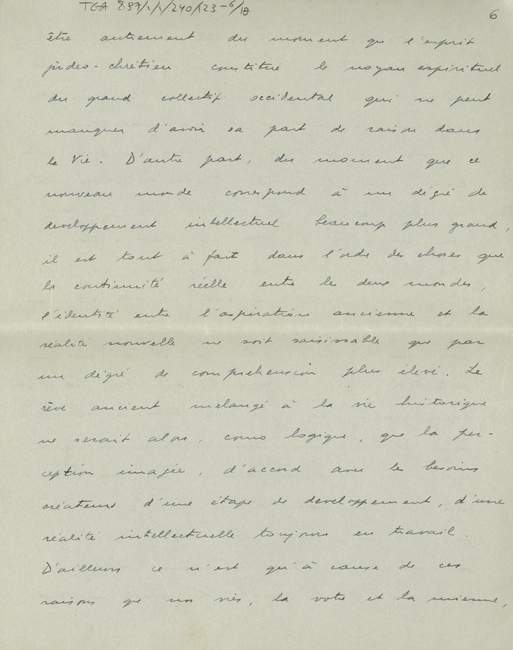 TGA 897/1/1/240/123-6/18
6
être autrement du moment que l'esprit
judeo-chrétien constitue le noyau espirituel
du grand collectif occidental qui ne peut
manquer d'avoir sa part de raison dans
la Vie. D'autre part, du moment que ce
nouveau monde correspond à un dégré de
developpement intellectuel beaucoup plus grand,
il est tout à fait dans l'ordre des choses que
la continuité réelle entre les deux mondes,
l'identité entre l'aspiration ancienne et la
réalité nouvelle ne soit saisissable que par
un dégré de comprehension plus élevé. Le
rêve ancient mélangé à la vie historique
ne serait alors, comme logique, que la per-
ception imagée, d'accord avec le besoins
créateurs d'une étape de developpement, d'une
réalité intellectuelle toujours en travail.
D'ailleurs ce n'est qu'à cause de ces
raisons que nos vies, la votre et la mienne,